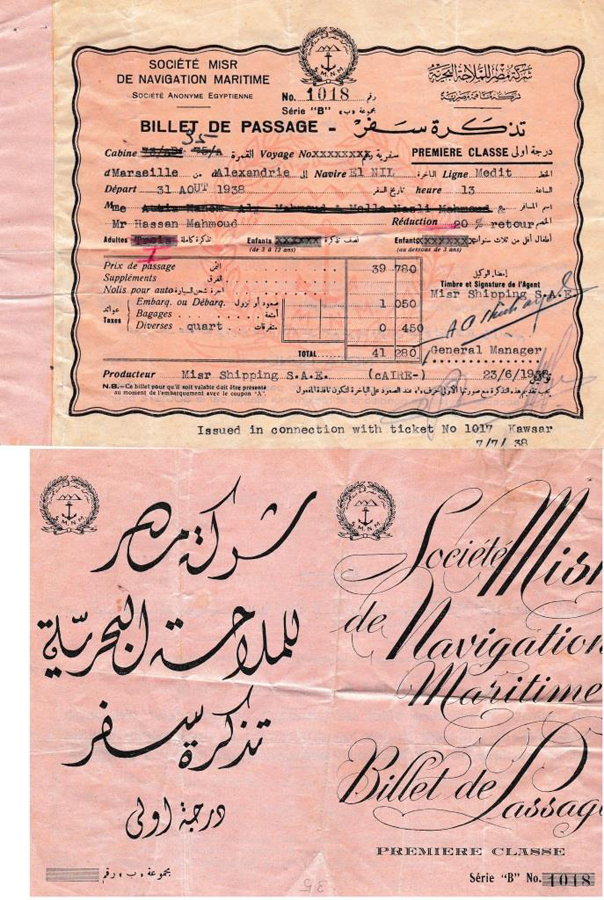 SOCIÉTÉ MISR
DE NAVIGATION MARITIME
SOCIÉTÉ ANONYME EGYPTIENNE
S.M.N.M
شركة مصر للملاحة البحرية
شركة مساهمة مصرية
No. 1018 رقم
Série "B" مجموعة «ب»
BILLET DE PASSAGE - تذكرة سفر
35
Cabine 75/A القمرة Voyage No XXXXXXXX سفرية رقم PREMIÈRE CLASSE درجة أولى
d'Marseille من à Alexandrie الى Navire El NIL الباخرة Ligne Medit الخط
Départ 31 AOUT 1938 تاريخ السفر heure 13 الساعة
Mme &  اسم المسافر
Mr Hassan Mahmoud Réduction 20 % retour الخصم
Adultes تذكرة كاملة Enfants XXXXXX نصف تذكرة Enfants XXXXXXX أطفال أقل من ثلاث سنوات
(de 3 à 12 ans) (au dessous de 3 ans)
Prix de passage الثمن 39 780
Suppléments الفرق
Nolis pour auto أجرة شحن السيارة
Taxes عوائد
Embarq. ou Débarq. صعود أو نزول 1 050
Bagages أمتعة
Diverses quart متفرقات 0 450
TOTAL 41 280
إمضاء الوكيل
Timbre et Signature de l'Agent
Misr Shipping S.A.E.
General Manager
Producteur Misr Shipping S.A.E. (cAIRE-) 23/6/1938
N.B.- Ce billet pour qu'il soit valable doit être présenté
au moment de l'embarquement avec le coupon "A".
Issued in connection with ticket No 1017 Kawsar
7/7/38
S.M.N.M
شركة مصر
للملاحة البحرية
تذكرة سفر
درجة اولى
مجموعة «ب» رقم
S.M.N.M
Société Misr
de Navigation
Maritime
Billet de Passag
PREMIERE CLASSE
Série "B" No. 1018
35